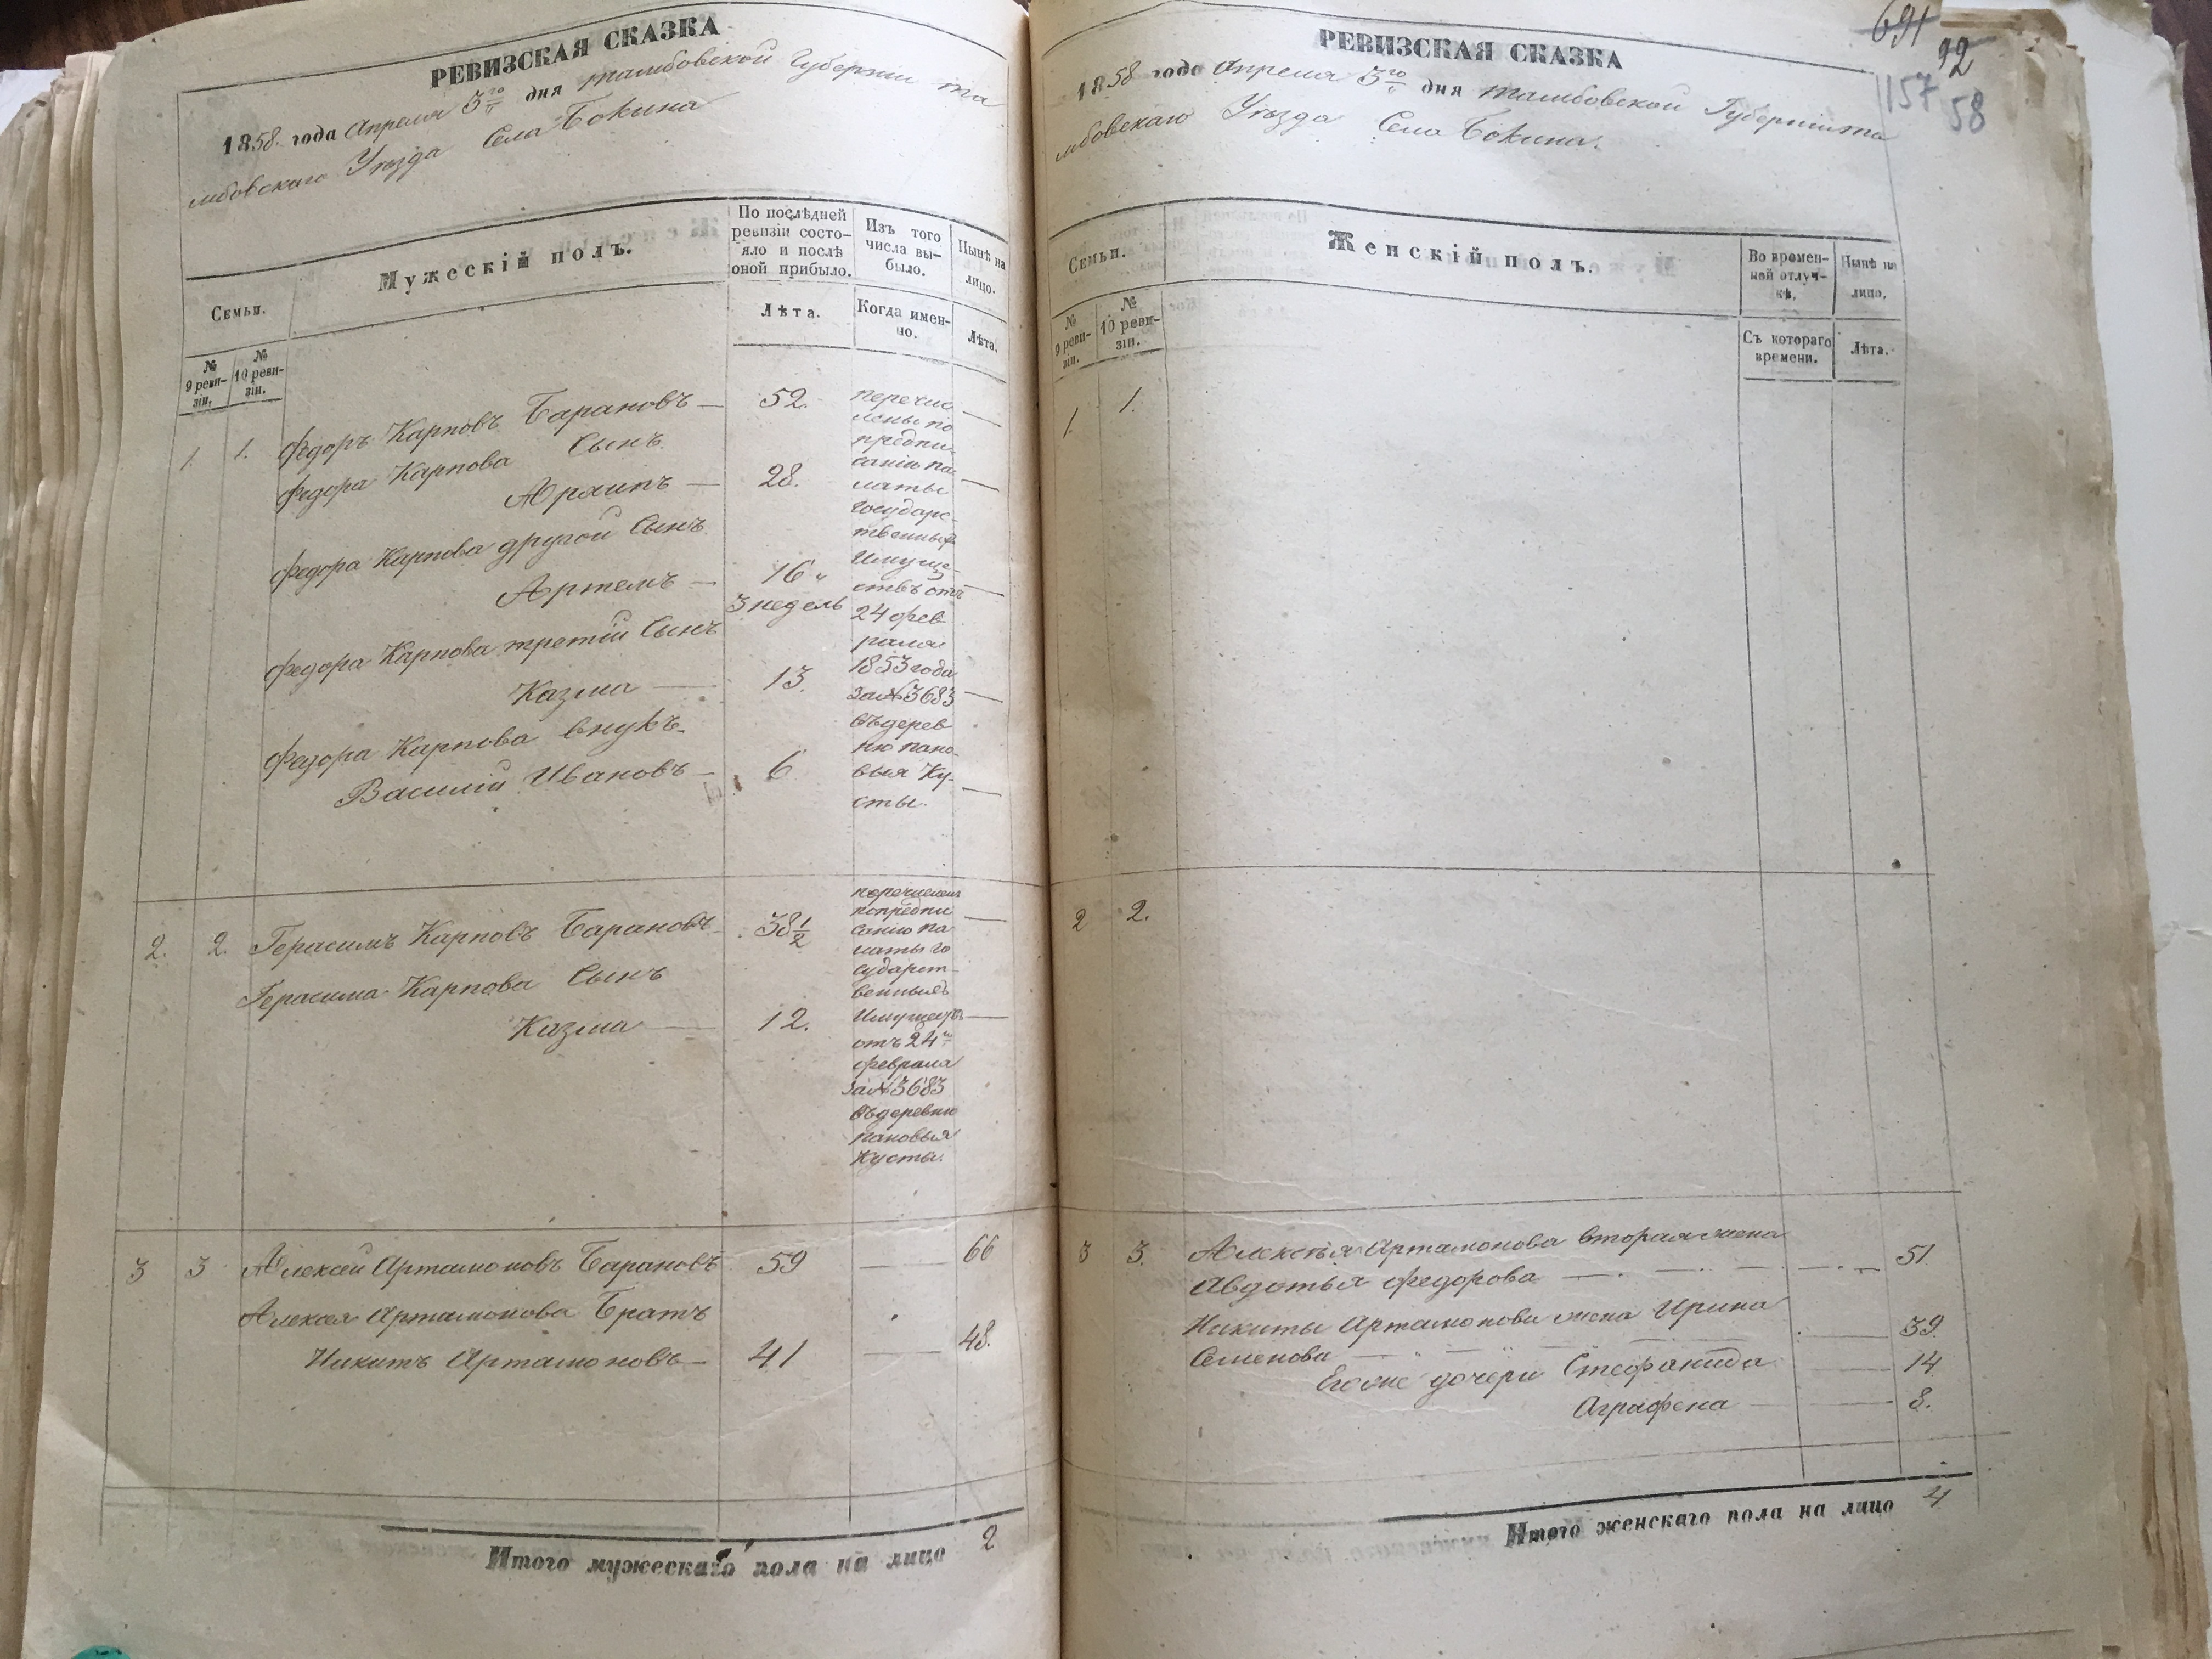 РЕВИЗСКАЯ СКАЗКА
1858 года Апреля 3го дня тамбовской Губернии та
мбовскаго Уѣзда Села Бокина
Семьи.
Мужескій полъ.
По послѣдней ревизіи состояло и послѣ оной прибыло.
Изъ того числа выбыло.
Нынѣ на лицо.
№ 9 ревизіи.
№ 10 ревизіи.
Лѣта.
Когда именно.
Лѣта.
1. 1. Федоръ Карповъ Барановъ — 52.
Федора Карпова Сынъ
Архипъ — 28.
Федора Карпова другой Сынъ
Артемъ — 16
3 недель
Федора Карпова третій Сынъ
Казма — 13.
Федора Карпова внукъ
Василій Ивановъ — 6
перечис
лены по
предпи
санію па
латы
государс
твенныхъ
Имуще
ствъ отъ
24 фев
раля
1853 года
за № 3683
въ дерев
ню пано
выя Ку
сты.
2. 2. Герасимъ Карповъ Барановъ 38 1/2
Герасима Карпова Сынъ
Казма — 12.
перечислены
по предпи
санію па
латы го
сударст
венныхъ
Имуществъ
отъ 24го
февраля
за № 3683
въ деревню
пановыя
Кусты.
3 3 Алексей Артамоновъ Барановъ 59 — 66
Алексея Артамонова Братъ
Никитъ Артамоновъ — 41 — 48.
Итого мужескаго пола на лицо 2
691
92
1157
58
РЕВИЗСКАЯ СКАЗКА
1858 года Апреля 3го дня тамбовской Губерніи та
мбовскаго Уѣзда Села Бокина.
Семьи.
Женскій полъ.
Во временной отлучкѣ,
Нынѣ на лицо,
№ 9 ревизіи.
№ 10 ревизіи.
Съ котораго времени.
Лѣта.
1. 1.
2 2.
3 3. Алексѣя Артамонова вторая жена
Авдотья Федорова — 51
Никиты Артамонова жена Ирина
Семенова — 39.
Егоже дочери Стефанида — 14
Аграфена — 8.
Итого женскаго пола на лицо 4